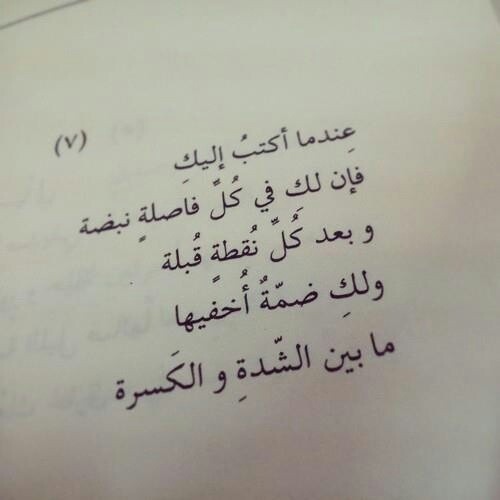 (٧)
عِندما أكتبُ إليكِ
فإن لكِ في كُلِّ فاصلةٍ نبضة
و بعد كُلِّ نُقطةٍ قُبلة
ولكِ ضمّةٌ أُخفيها
ما بين الشّدةِ و الكَسرة